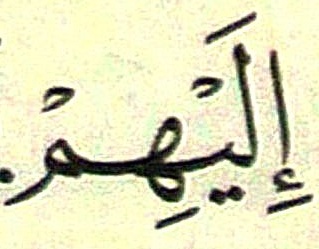 إِلَيْهِمْ.